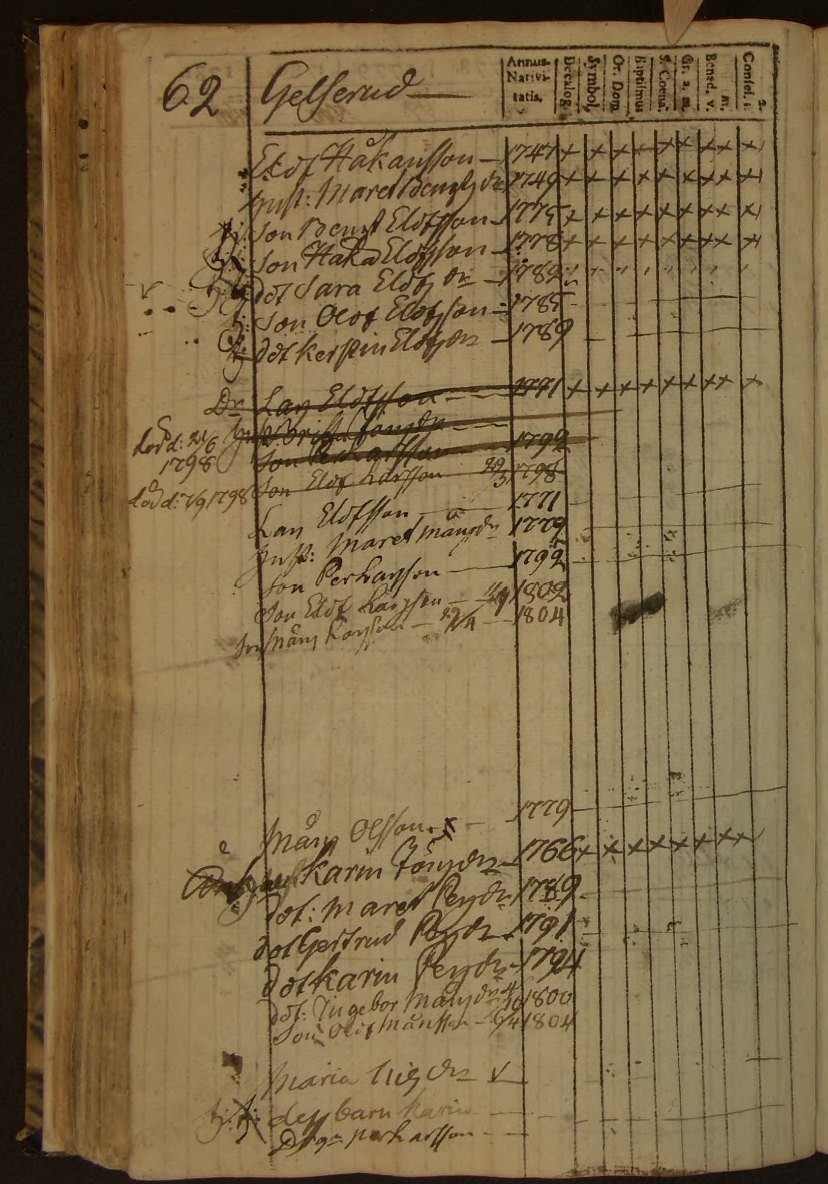 62 Gelserud
Annus Nativitatis.
Decalog.
Symbol.
Or. Dom
Baptismus
S. Coena.
Gr. a. m.
Bened. v. m.
Confes. 1. 2.
Elof Håkansson 1747
Hust: Maret Bengtsdr 1749
Son Bengt Elofsson 1775
Son Håkan Elofsson 1778
dot Sara Elofsdr 1782
Son Olof Elofsson 1785
dot Kerstin Elofsdr 1789
Dr Lars Elofsson 1771
Son Per Larsson 1792
död d: 1798
Son Elof Larsson 1798
död d: 7/9 1798
Lars Elofsson 1771
Hust: Maret Månsdr 1779
Son Per Larsson 1792
Son Elof Larsson 1802
Son Måns Larsson 1804
Måns Olsson 1779
Karin Jönsdr 1766
dot: Maret Persdr 1789
dot Gertrud Persdr 1791
dot Karin Persdr 1794
dot: Ingebor Månsdr 1800
Son Olof Månsson 1804
Maria Nilsdr
dess barn Karin
Per Larsson